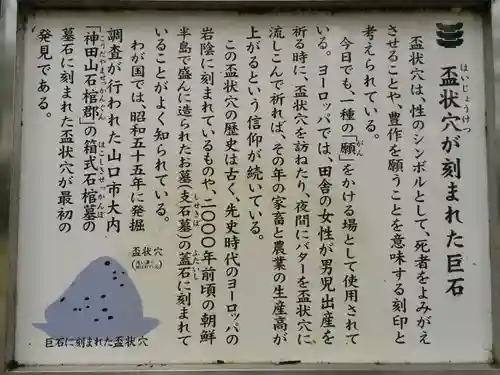 盃状穴が刻まれた巨石
はいじょうけつ
盃状穴は、性のシンボルとして、死者をよみがえ
させることや、豊作を願うことを意味する刻印と
考えられている。
今日でも、一種の「願」をかける場として使用されて
がん
いる。ヨーロッパでは、田舎の女性が男児出産を
祈る時に、盃状穴を訪ねたり、夜間にバターを盃状穴に
流しこんで祈れば、その年の家畜と農業の生産高が
上がるという信仰が続いている。
この盃状穴の歴史は古く、先史時代のヨーロッパの
岩陰に刻まれているものや、二〇〇〇年前頃の朝鮮
半島で盛んに造られたお墓(支石墓)の蓋石に刻まれて
しせきぼ
ふたいし
いることがよく知られている。
わが国では、昭和五十五年に発掘
調査が行われた山口市大内
「神田山石棺郡」の箱式石棺墓の
こうだやませっかんぐん
はこしきせっかんぼ
墓石に刻まれた盃状穴が最初の
発見である。
盃状穴
巨石に刻まれた盃状穴